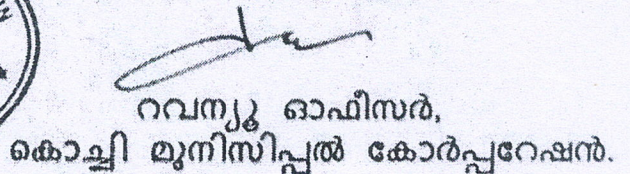 റവന്യൂ ഓഫീസർ,
കൊച്ചി മുനിസിപ്പൽ കോർപ്പറേഷൻ.